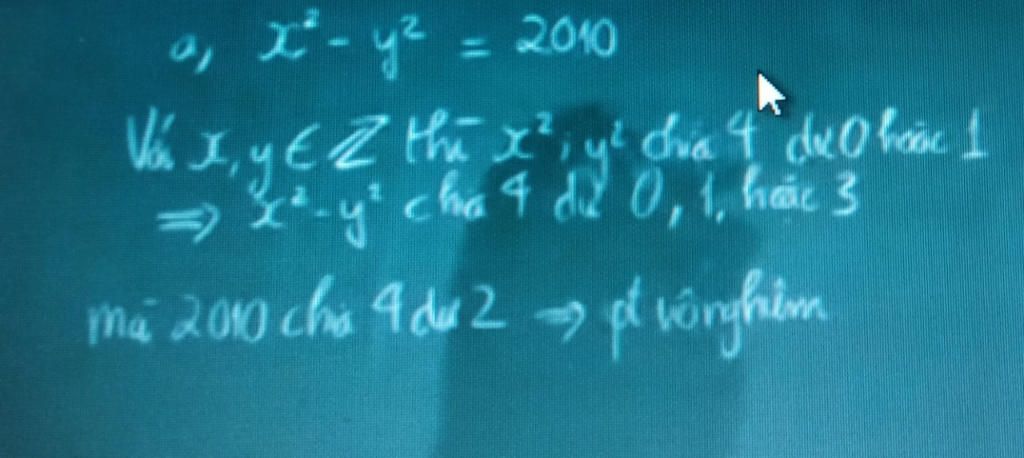 a, x² - y² = 2010
Với x, y ∈ ℤ thì x²; y² chia 4 dư 0 hoặc 1
⇒ x² - y² chia 4 dư 0, 1, hoặc 3
mà 2010 chia 4 dư 2 ⇒ pt vô nghiệm